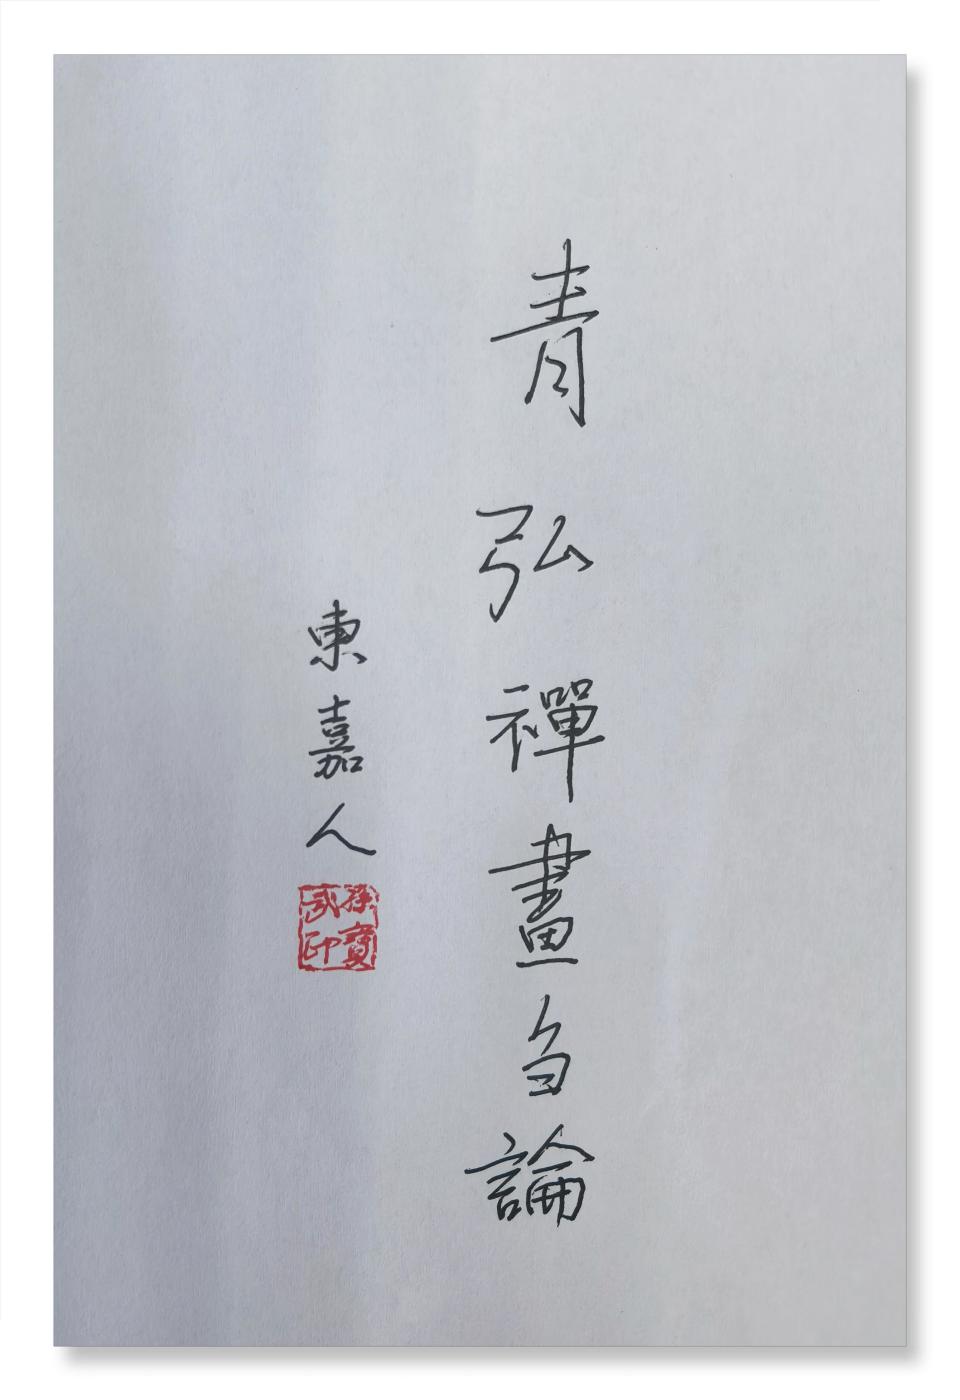 青弘禪畫刍論
東嘉人
孫寶
印